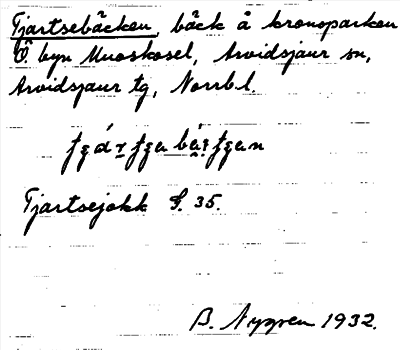 Tjartsebäcken, bäck å kronoparken
Ö. byn Muoskosel, Arvidsjaur sn,
Arvidsjaur tg, Norrb.l.
Tjartsejokk S. 35.
B. Nygren 1932.